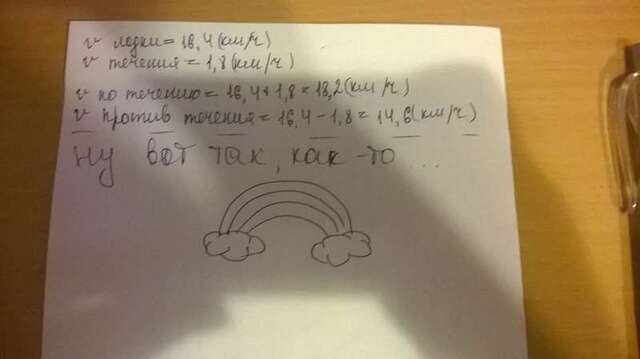 v лодки = 16,4 (км/ч)
v течения = 1,8 (км/ч)
v по течению = 16,4 + 1,8 = 18,2 (км/ч)
v против течения = 16,4 - 1,8 = 14,6 (км/ч)
ну вот так, как-то ...